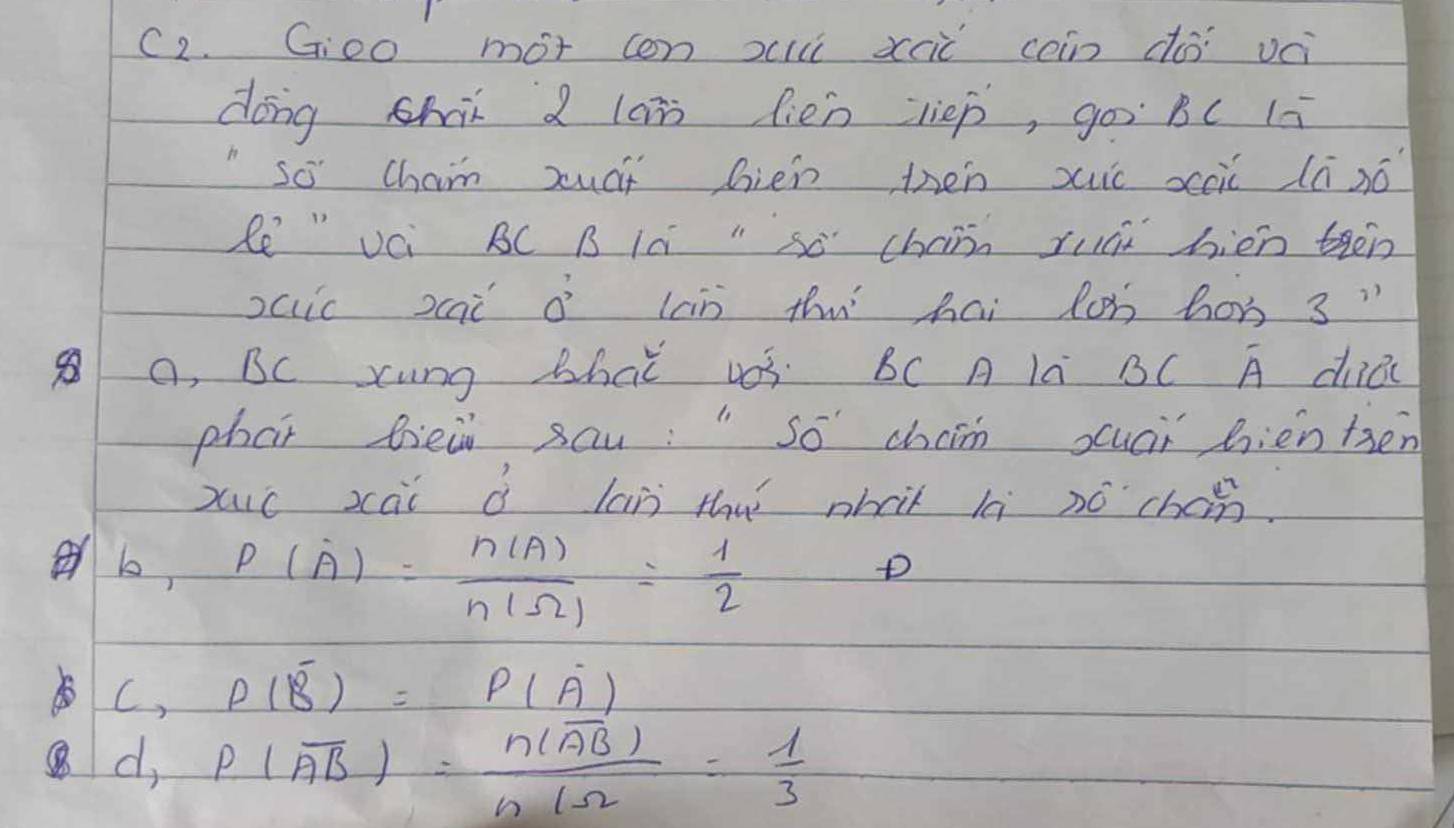 C2. Gieo một con xúc xắc cân đối và
đồng chất 2 lần liên tiếp, gọi BC là
"số chấm xuất hiện trên xúc xắc là số
lẻ" và BC B là "số chấm xuất hiện trên
xúc xắc ở lần thứ hai lớn hơn 3"
a, BC xung khắc với BC A là BC Ā được
phát biểu sau: "Số chấm xuất hiện trên
xúc xắc ở lần thứ nhất là số chẵn.
b, P(Ā) = n(A) / n(Ω) = 1/2
c, P(B̄) = P(Ā)
d, P(A̅B̅) = n(A̅B̅) / n(Ω = 1/3